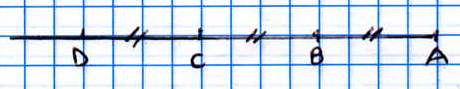 D C B A